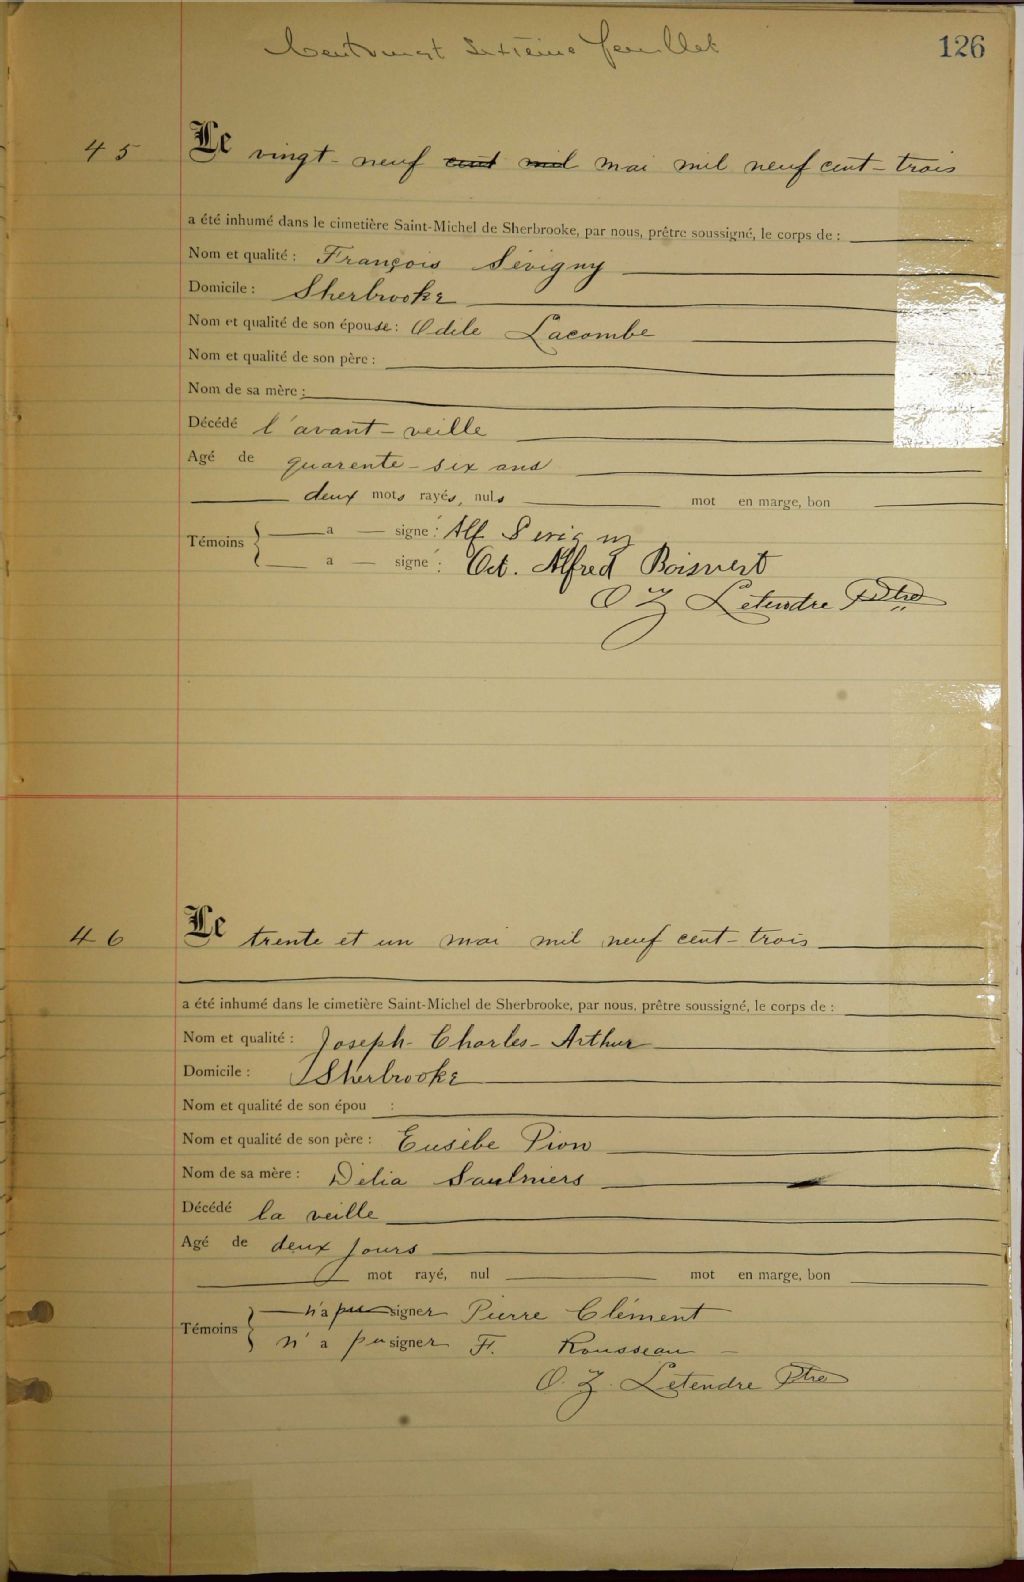 Cent vingt sixième feuillet
126
45
Le vingt-neuf cent mil mai mil neuf cent-trois
a été inhumé dans le cimetière Saint-Michel de Sherbrooke, par nous, prêtre soussigné, le corps de :
Nom et qualité : François Sévigny
Domicile : Sherbrooke
Nom et qualité de son épouse : Odile Lacombe
Nom et qualité de son père :
Nom de sa mère :
Décédé l'avant-veille
Agé de quarente-six ans
deux mots rayés, nuls mot en marge, bon
Témoins
a signé : Alf Sevigny
a signé : Oct. Alfred Boisvert
O Z Letendre Ptre
46
Le trente et un mai mil neuf cent-trois
a été inhumé dans le cimetière Saint-Michel de Sherbrooke, par nous, prêtre soussigné, le corps de :
Nom et qualité : Joseph-Charles-Arthur
Domicile : Sherbrooke
Nom et qualité de son épou :
Nom et qualité de son père : Eusèbe Pion
Nom de sa mère : Délia Saulniers
Décédé la veille
Agé de deux jours
mot rayé, nul mot en marge, bon
Témoins
n'a pu signer Pierre Clément
n'a pu signer F. Rousseau
O. Z. Letendre Ptre